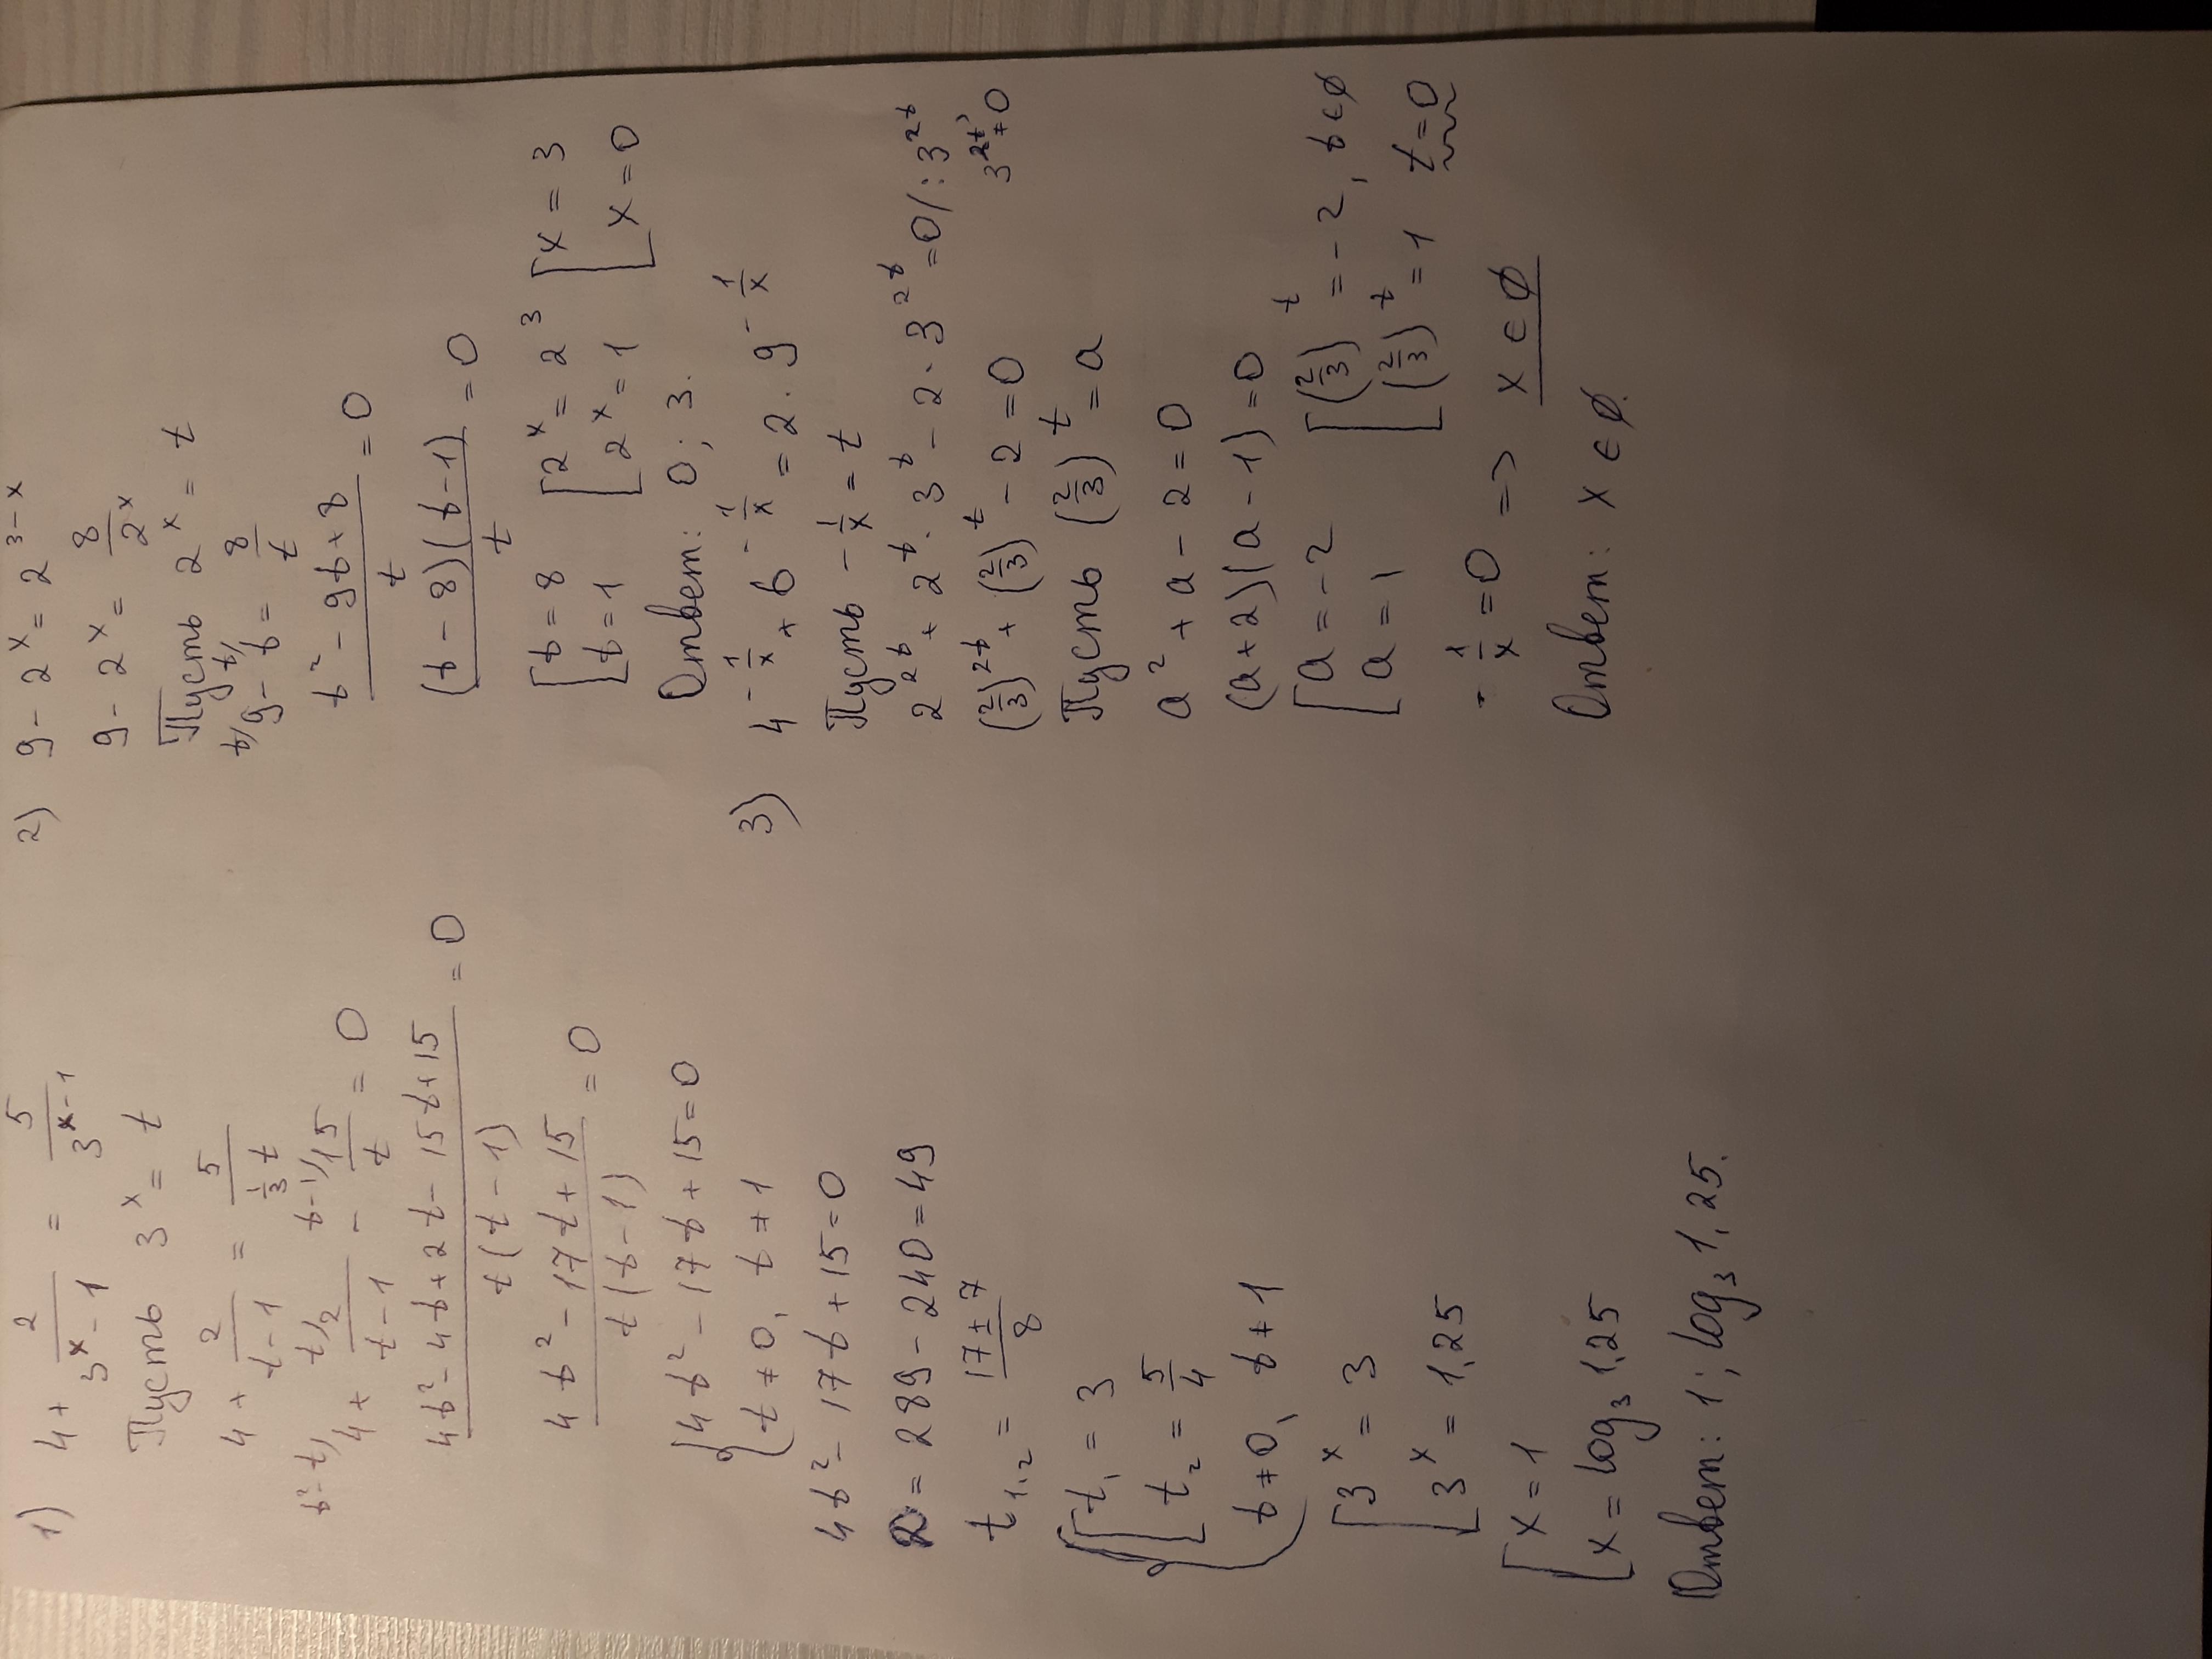 1) 4 + 2/(3^x - 1) = 5/3^(x-1)
Пусть 3^x = t
4 + 2/(t-1) = 5/(1/3 t)
t²-t/ 4 + t/ 2/(t-1) - t-1/ 15/t = 0
(4t² - 4t + 2t - 15t + 15)/(t(t-1)) = 0
(4t² - 17t + 15)/(t(t-1)) = 0
{ 4t² - 17t + 15 = 0
{ t ≠ 0, t ≠ 1
4t² - 17t + 15 = 0
D = 289 - 240 = 49
t₁,₂ = (17 ± 7)/8
{ [ t₁ = 3
[ t₂ = 5/4
t ≠ 0, t ≠ 1
[ 3^x = 3
[ 3^x = 1,25
[ x = 1
[ x = log₃ 1,25
Ответ: 1; log₃ 1,25.
2) 9 - 2^x = 2^(3-x)
9 - 2^x = 8/2^x
Пусть 2^x = t
t/ 9 - t/ t = 8/t
(t² - 9t + 8)/t = 0
((t-8)(t-1))/t = 0
[ t = 8 [ 2^x = 2³ [ x = 3
[ t = 1 [ 2^x = 1 [ x = 0
Ответ: 0; 3.
3) 4^(-1/x) + 6^(-1/x) = 2 · 9^(-1/x)
Пусть -1/x = t
2^(2t) + 2^t · 3^t - 2 · 3^(2t) = 0 /: 3^(2t)
3^(2t) ≠ 0
(2/3)^(2t) + (2/3)^t - 2 = 0
Пусть (2/3)^t = a
a² + a - 2 = 0
(a+2)(a-1) = 0
[ a = -2 [ (2/3)^t = -2, t ∈ ∅
[ a = 1 [ (2/3)^t = 1 t = 0
-1/x = 0 => x ∈ ∅
Ответ: x ∈ ∅.